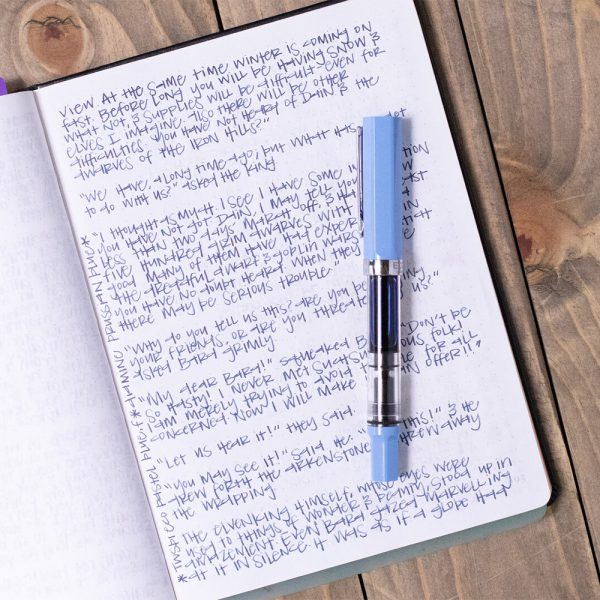 VIEW. AT THE SAME TIME WINTER IS COMING ON
FAST. BEFORE LONG YOU WILL BE HAVING SNOW &
WHAT NOT & SUPPLIES WILL BE DIFFICULT - EVEN FOR
ELVES I IMAGINE. ALSO THERE WILL BE OTHER
DIFFICULTIES. YOU HAVE NOT HEARD OF DAIN & THE
DWARVES OF THE IRON HILLS?"
"WE HAVE, A LONG TIME AGO; BUT WHAT HAS
TO DO WITH US?" ASKED THE KING
"I THOUGHT AS MUCH. I SEE I HAVE SOME
YOU HAVE NOT GOT. DAIN, I MAY TELL YOU
LESS THAN TWO DAYS MARCH OFF, & HAS
FIVE HUNDRED GRIM DWARVES WITH
GOOD MANY OF THEM HAVE HAD
THE DREADFUL DWARF & GOBLIN WARS
YOU HAVE NO DOUBT HEARD. WHEN THEY
THERE MAY BE SERIOUS TROUBLE."
"WHY DO YOU TELL US THIS? ARE YOU
YOUR FRIENDS, OR ARE YOU US?"
ASKED BARD GRIMLY.
"MY DEAR BARD!" SQUEAKED "DON'T BE
SO HASTY! I NEVER MET SUCH FOLK!
I AM MERELY TRYING TO AVOID FOR ALL
CONCERNED. NOW I WILL MAKE AN OFFER!!"
"LET US HEAR IT!" THEY SAID
"YOU MAY SEE IT!" SAID HE. THIS!" & HE
DREW FORTH THE ARKENSTONE THREW AWAY
THE WRAPPING
THE ELVENKING HIMSELF, WHOSE EYES WERE
USED TO THINGS OF WONDER & BEAUTY, STOOD UP IN
AMAZEMENT. EVEN BARD GAZED MARVELLING
AT IT IN SILENCE. IT WAS AS IF A GLOBE HAD